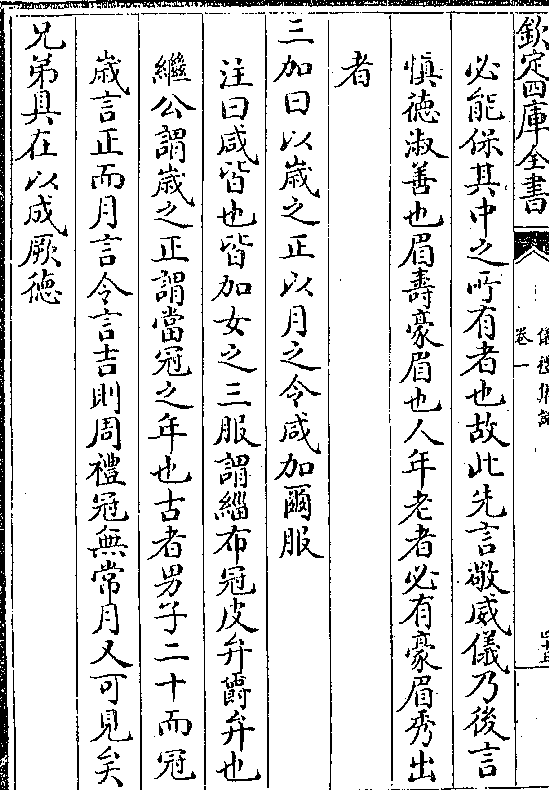 欽定四庫全書
卷一
必能保其中之所有者也故此先言敬威儀乃後言
慎徳淑善也眉夀豪眉也人年老者必有豪眉秀出
者
三加曰以歳之正以月之令咸加爾服
注曰咸皆也皆加女之三服謂緇布冠皮弁爵弁也
繼公謂歳之正謂當冠之年也古者男子二十而冠
歳言正而月言令言吉則周禮冠無常月又可見矣
兄弟具在以成厥徳